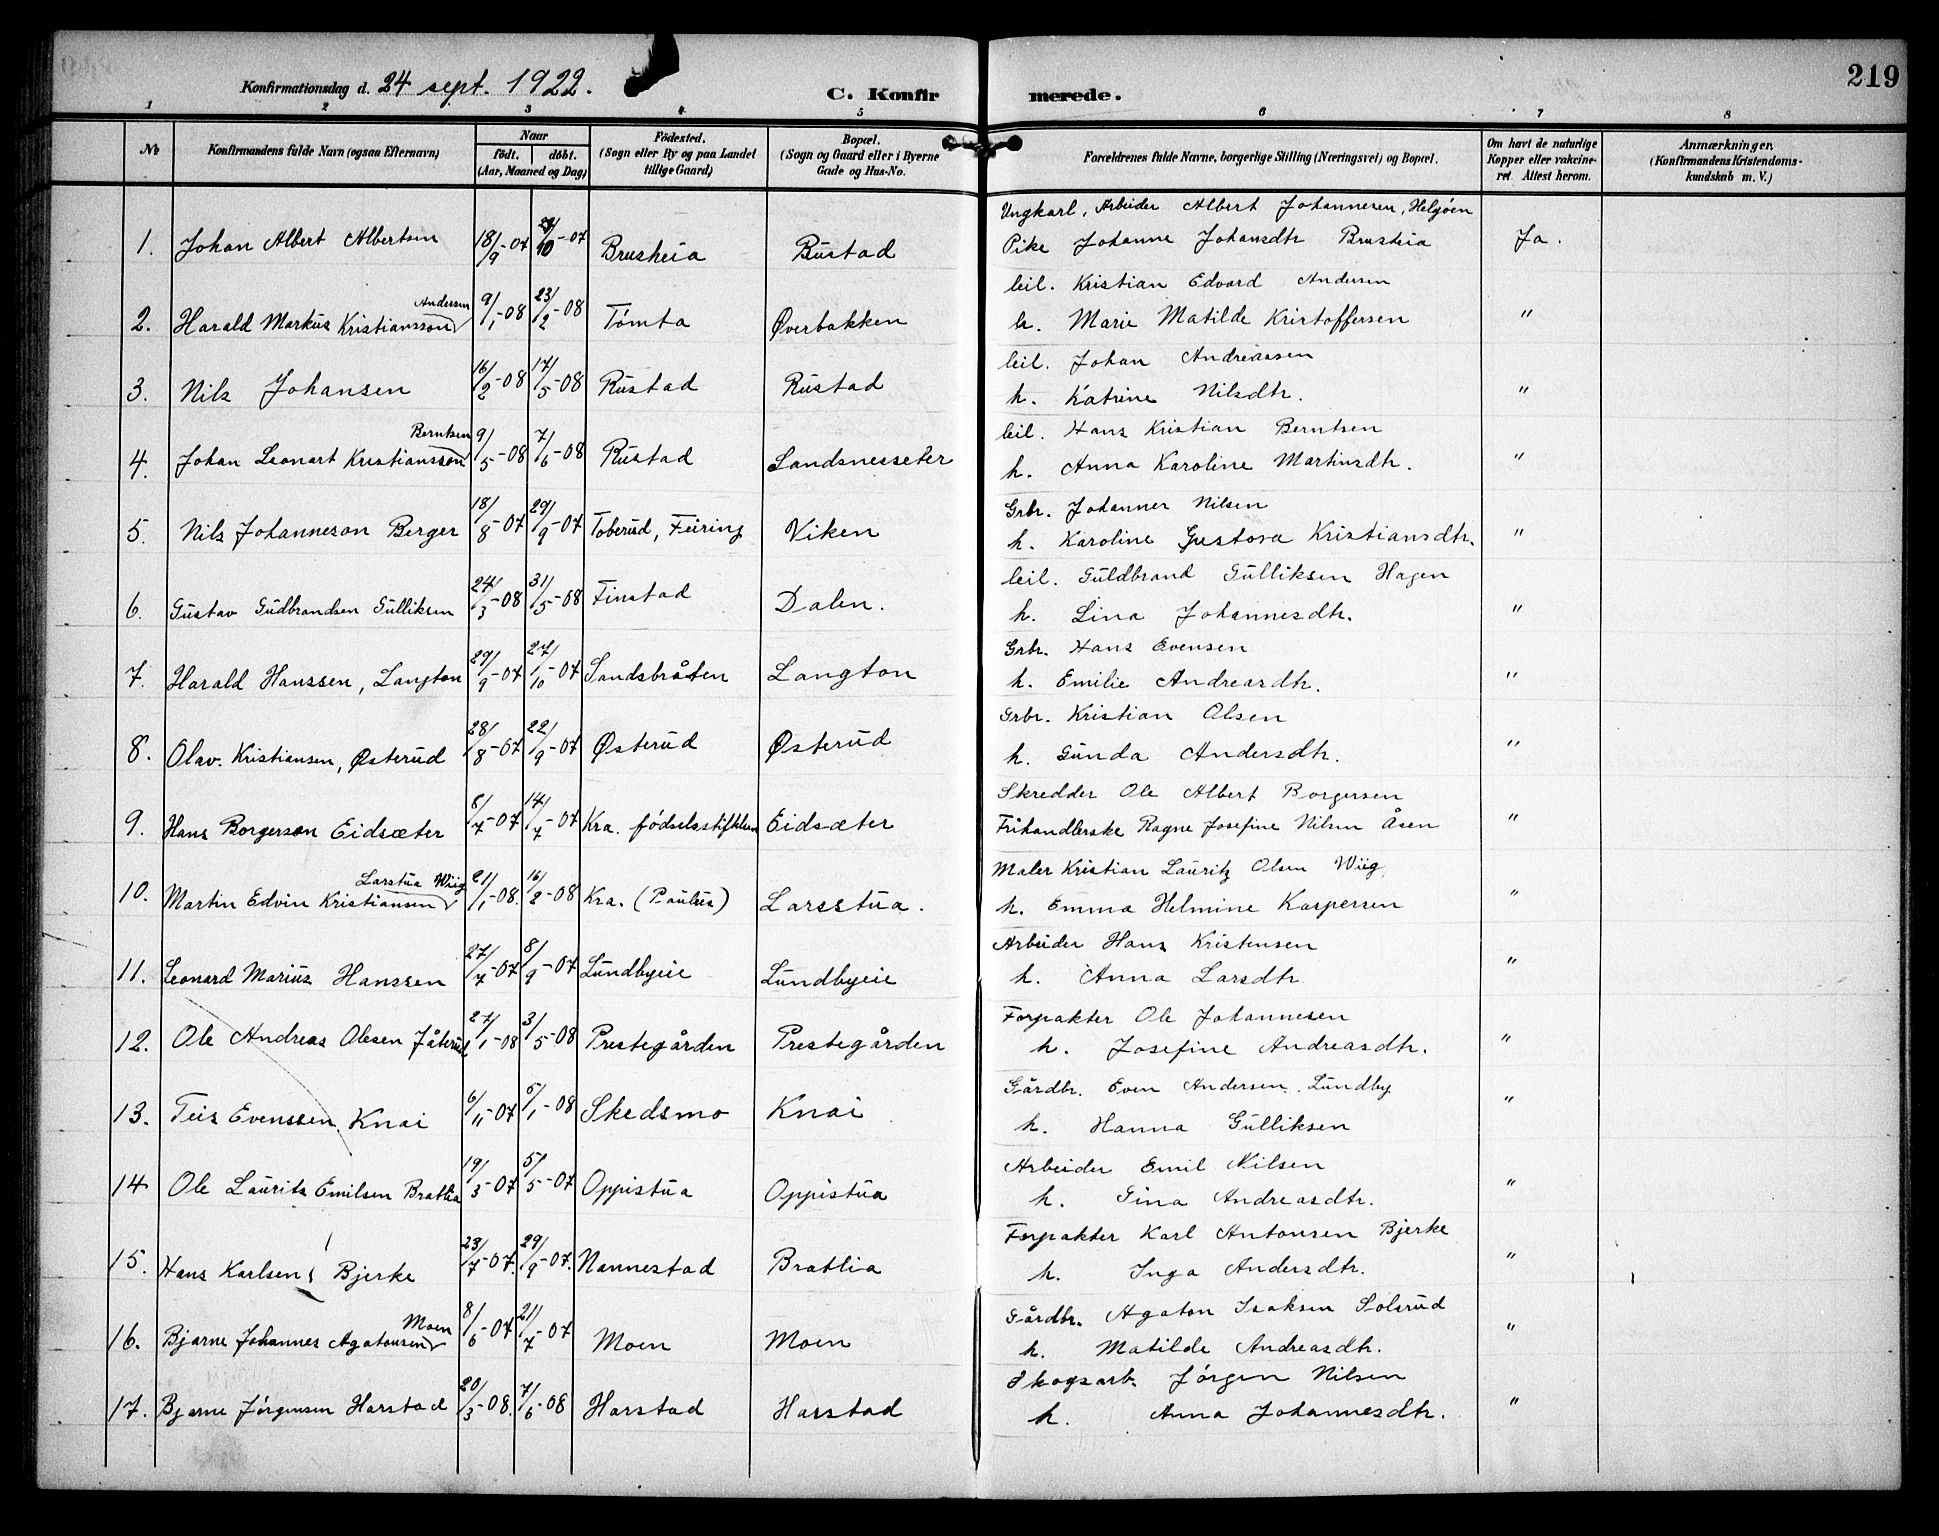 219
Konfirmationsdag d. 24 sept. 1922.
C. Konfirmerede.
1 2 3 4 5 6 7 8
№ | Konfirmandens fulde Navn (ogsaa Efternavn) | Naar födt. döbt. (Aar, Maaned og Dag) | Födested. (Sogn eller By og paa Landet tillige Gaard) | Bopæl. (Sogn og Gaard eller i Byerne Gade og Hus-No. | Forældrenes fulde Navne, borgerlige Stilling (Næringsvei) og Bopæl. | Om havt de naturlige Kopper eller vakcineret. Attest herom. | Anmærkninger. (Konfirmandens Kristendomskundskab m. V.)
Ungkarl, Arbeider Albert Johannesen, Helgöen
1. Johan Albert Albertsen 18/9-07 /10-07 Brusheia Bustad Pike Johanne Johansdtr Brusheia Ja.
leil. Kristian Edvard Andersen
2. Harald Markus Kristianssön Andersen 9/1-08 23/2-08 Tömta Øverbakken h. Marie Matilde Kristoffersen "
leil. Johan Andreassen
3. Nils Johansen 16/2-08 17/5-08 Rustad Rustad h. Katrine Nilsdtr. "
leil. Hans Kristian Berntsen
4. Johan Leonart Kristianssen Berntsen 9/5-08 7/6-08 Rustad Sandsnesseter h. Anna Karoline Martinsdtr. "
Grbr. Johannes Nilsen
5. Nils Johanneson Berger 18/8-07 29/9-07 Toberud, Feiring Viken h. Karoline Gustava Kristiansdtr. "
leil. Guldbrand Gulliksen Hagen
6. Gustav Gudbrandsen Gulliksen 24/3-08 31/5-08 Finstad Dalen. h. Lina Johannesdtr. "
Grbr. Hans Evensen
7. Harald Hanssen, Langton 29/9-07 27/10-07 Sandsbråten Langton h. Emilie Andreasdtr. "
Grbr. Kristian Olsen
8. Olav. Kristiansen, Østerud 28/8-07 22/9-07 Østerud Østerud h. Gunda Andersdtr. "
Skredder Ole Albert Borgersen
9. Hans Borgerson Eidsæter 8/7-07 14/7-07 Kra. fødselsstiftelsen Eidsæter Frihandlerske Ragne Josefine Nilsen Åsen "
Maler Kristian Lauritz Olsen Wiig
10. Martin Edvin Kristiansen Larstua Wiig 21/1-08. 16/2-08 Kra. (Paulus) Larsstua. h. Emma Helmine Kaspersen "
Arbeider Hans Kristensen
11. Leonard Marius Hanssen 27/7-07 8/9-07 Lundbyeie Lundbyeie h. Anna Larsdtr "
Forpakter Ole Johannesen
12. Ole Andreas Olesen Jåterud 27/1-08 3/5-08 Prestegården Prestegården h. Josefine Andreasdtr. "
Gårdbr. Even Andersen. Lundby
13. Teis Evenssen Knai 6/11-07 5/1-08 Skedsmo Knai h. Hanna Gulliksen "
Arbeider Emil Nilsen
14 Ole Laurits Emilsen Bratlia 19/3-07 5/5-07 Oppistua Oppistua h. Gina Andreasdtr. "
Forpakter Karl Antonsen Bjerke
15. Hans Karlsen, Bjerke 23/7-07. 29/9-07. Nannestad Bratlia h. Inga Andersdtr. "
Gårdbr. Agaton Isaksen Solsrud
16. Bjarne Johannes Agatonsen Moen 8/6-07 21/7-07 Moen Moen h. Matilde Andreasdtr. "
Skogsarb. Jörgen Nilsen
17. Bjarne Jörgensen Harstad 20/3-08. 7/6-08 Harstad Harstad h. Anna Johannesdtr. "